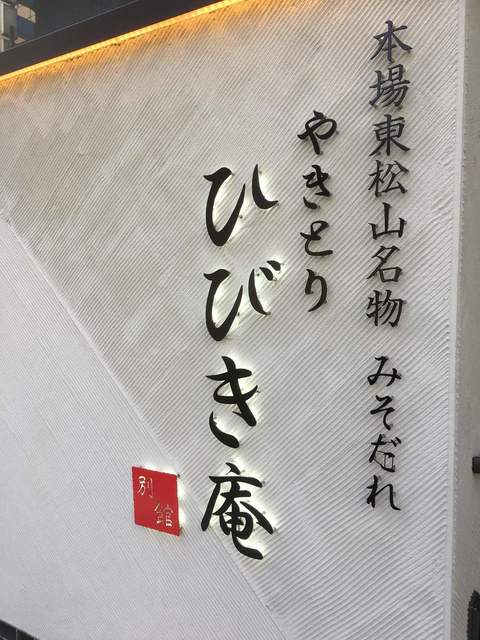 本場東松山名物 みそだれ
やきとり
ひびき庵
別館